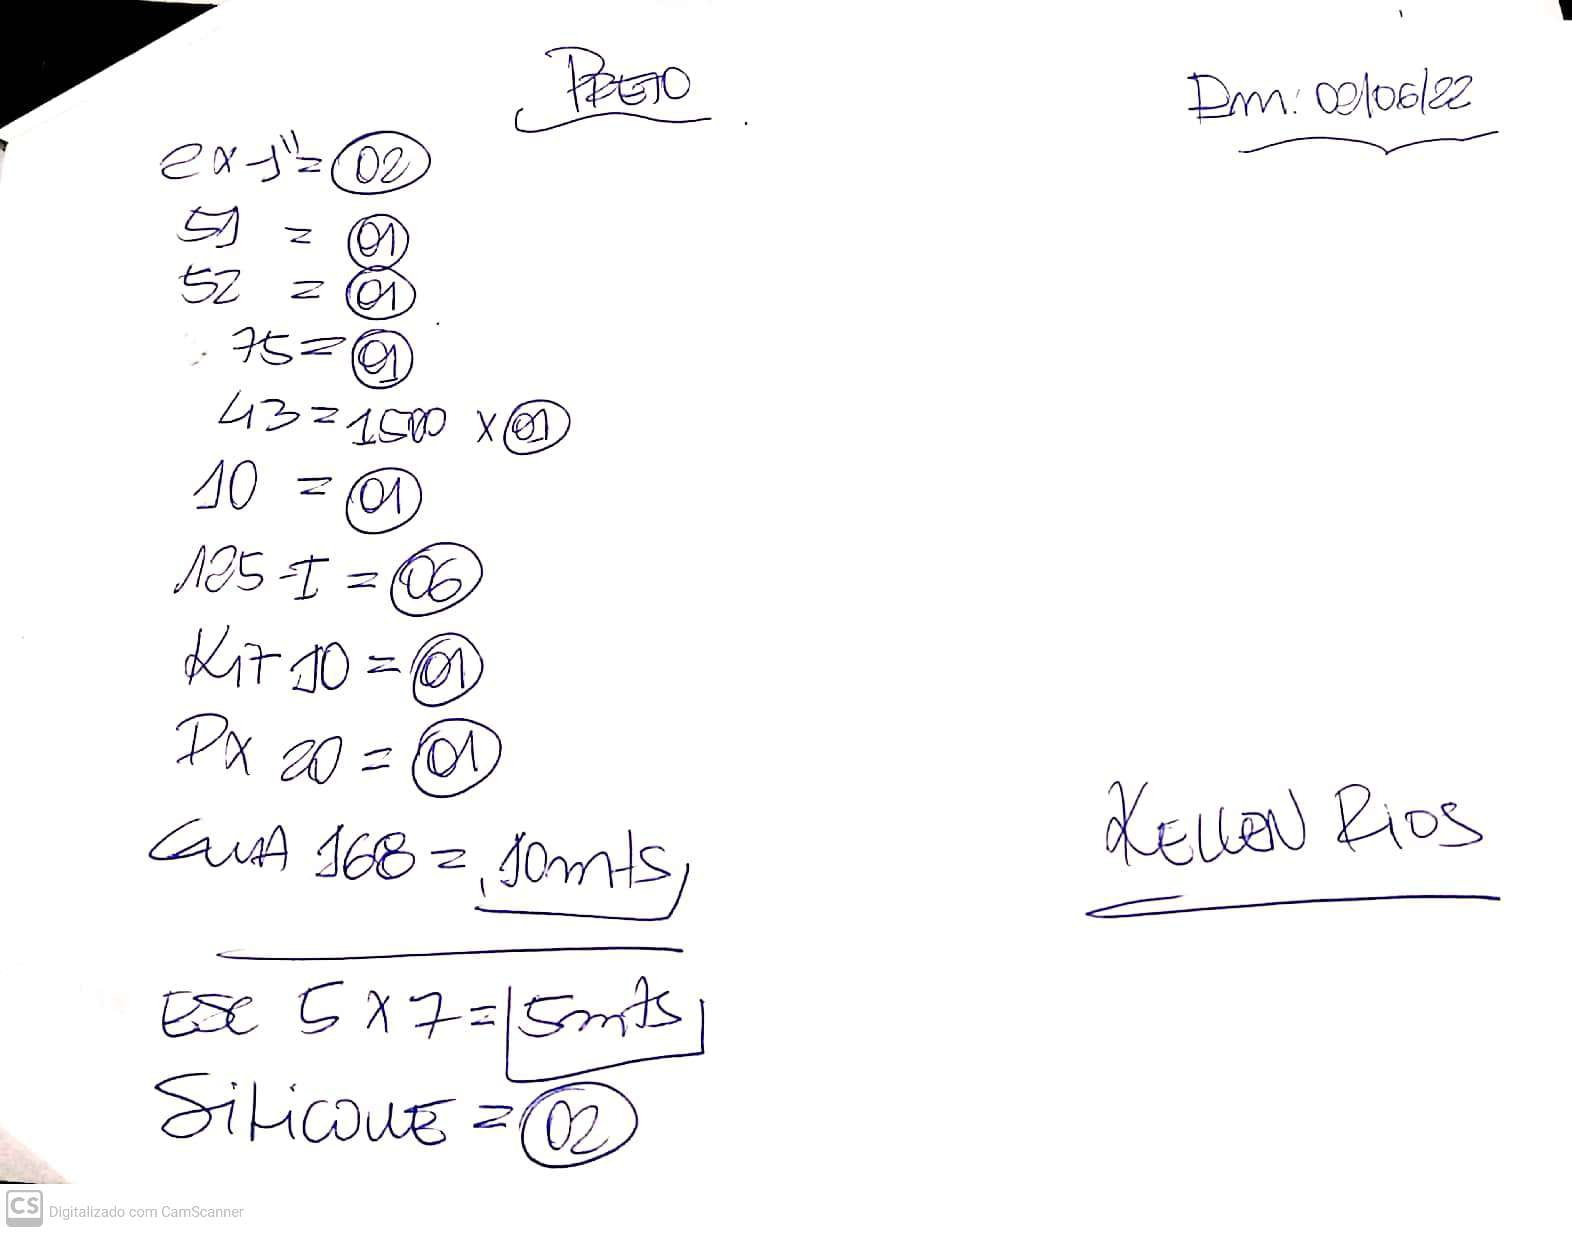 PRETO
Dm: 09/06/22
2x1" = 02
51 = 01
52 = 01
75 = 01
43 = 1500 x 01
10 = 01
125-I = 06
Kit 10 = 01
PX 20 = 01
GUIA 168 = 10mts
ESC 5 x 7 = 5mts
SiLicONE = 02
KELLEN RIOS
CS Digitalizado com CamScanner